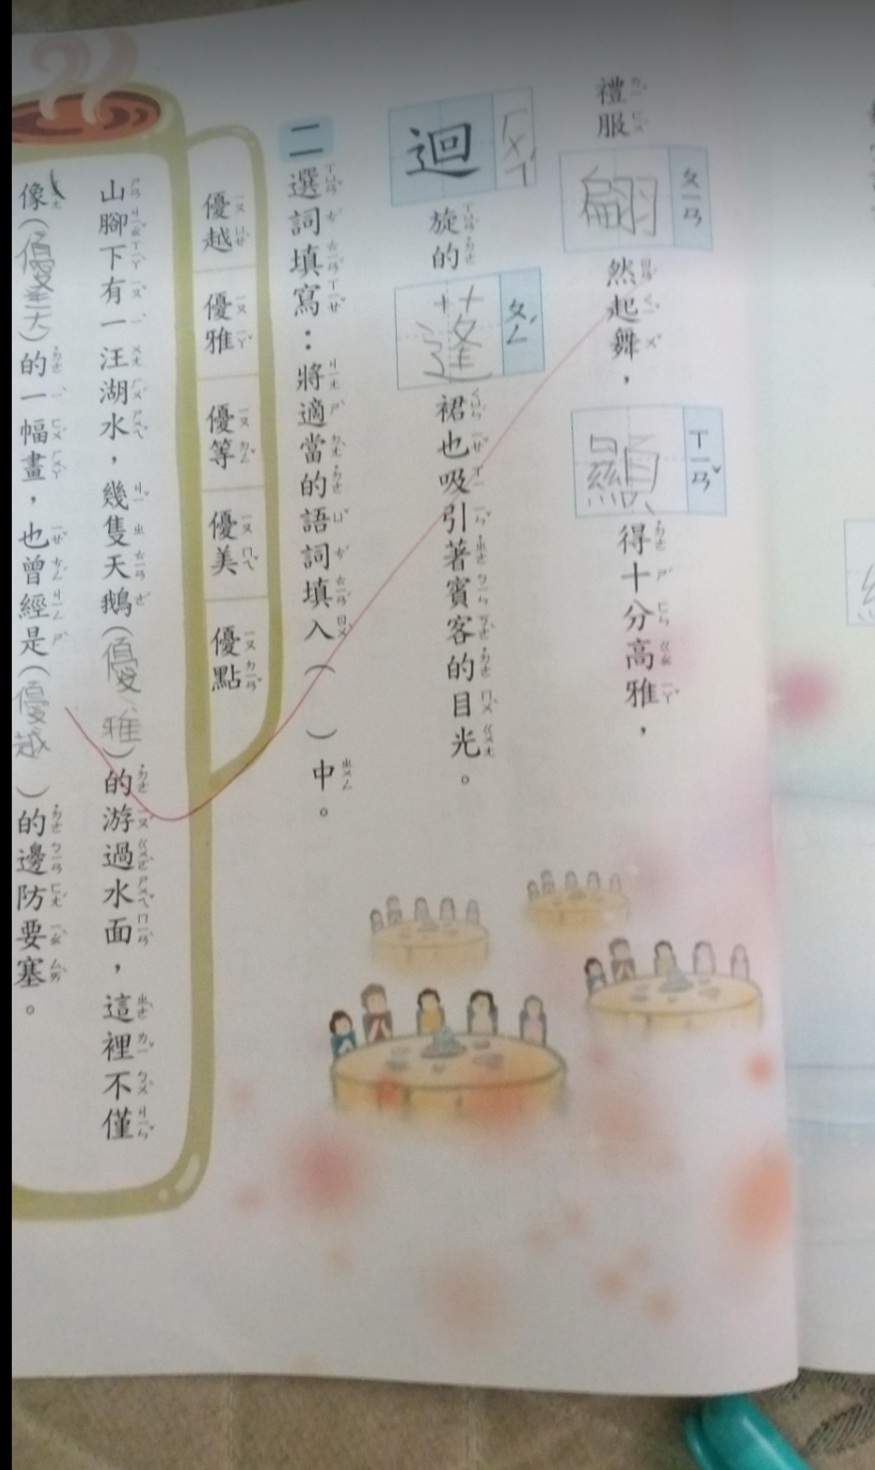 禮服翩然起舞，顯得十分高雅，
迴旋的蓬裙也吸引著賓客的目光。
二 選詞填寫：將適當的語詞填入（　）中。
優越 優雅 優等 優美 優點
山腳下有一汪湖水，幾隻天鵝（優雅）的游過水面，這裡不僅
像（優美）的一幅畫，也曾經是（優越）的邊防要塞。